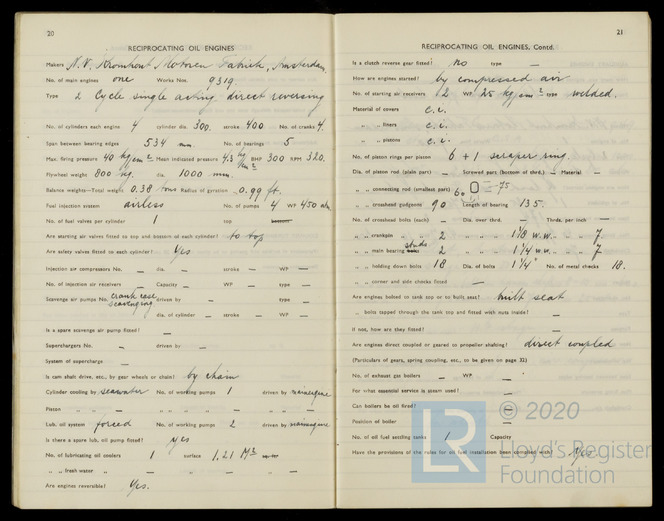 20
RECIPROCATING OIL ENGINES
Makers N.V. Kromhout Motoren Fabriek, Amsterdam.
No. of main engines one Works Nos. 9319
Type 2 Cycle single acting direct reversing
No. of cylinders each engine 4 cylinder dia. 300. stroke 400 No. of cranks 4.
Span between bearing edges 534 mm. No. of bearings 5
Max. firing pressures 40 kg/cm² Mean indicated pressures 4.3 kg/cm² BHP 300 RPM 320.
Flywheel weight 800 kg. dia. 1000 mm.
Balance weights—Total weight 0.38 tons Radius of gyration 0.99 ft.
Fuel injection system airless No. of pumps 4 WP 450 atm.
No. of fuel valves per cylinder 1 top bottom
Are starting air valves fitted to top and bottom of each cylinder? to top
Are safety valves fitted to each cylinder? Yes
Injection air compressors No. — dia. — stroke — WP —
No. of injection air receivers — Capacity — WP — type —
Scavenge air pumps No. crank case scavenging driven by — type —
dia. of cylinder — stroke — WP —
Is a spare scavenge air pump fitted? —
Superchargers No. — driven by —
System of supercharge —
Is cam shaft drive, etc., by gear wheels or chain? by chain
Cylinder cooling by seawater No. of working pumps 1 driven by main engine
Piston „ — „ „ „ — „ „ —
Lub. oil system forced No. of working pumps 2 driven by main engine
Is there a spare lub. oil pump fitted? yes
No. of lubricating oil coolers 1 surface 1.21 M²
„ „ fresh water „ — „ — „ „ —
Are engines reversible? Yes.
21
RECIPROCATING OIL ENGINES, Contd.
Is a clutch reverse gear fitted? No type —
How are engines started? by compressed air
No. of starting air receivers 2 WP 25 kg/cm² type welded.
Material of covers c.i.
„ „ liners c.i.
„ „ pistons c.i.
No. of piston rings per piston 6 + 1 scraper ring.
Dia. of piston rod (plain part) — Screwed part (bottom of thd.) — Material —
„ „ connecting rod (smallest part) 60 = 75
„ „ crosshead gudgeons 90 Length of bearing 135.
No. of crosshead bolts (each) — Dia. over thrd. — Thrds. per inch —
„ „ crankpin „ „ 2 „ „ „ 1 1/8 w.w. „ „ „ 7
„ „ main bearing studs „ 2 „ „ „ 1 1/4 w.w. „ „ „ 7
„ „ holding down bolts 18 Dia. of bolts 1 1/4" No. of metal chocks 18.
„ „ corner and side chocks fitted —
Are engines bolted to tank top or to built seat? built seat
„ bolts tapped through the tank top and fitted with nuts inside? —
If not, how are they fitted? —
Are engines direct coupled or geared to propeller shafting? direct coupled
(Particulars of gears, spring coupling, etc., to be given on page 32)
No. of exhaust gas boilers — WP —
For what essential service is steam used? —
Can boilers be oil fired? —
Position of boiler —
No. of oil fuel settling tanks 1 Capacity
Have the provisions of the rules for oil fuel installation been complied with? Yes
LR
© 2020
Lloyd's Register
Foundation